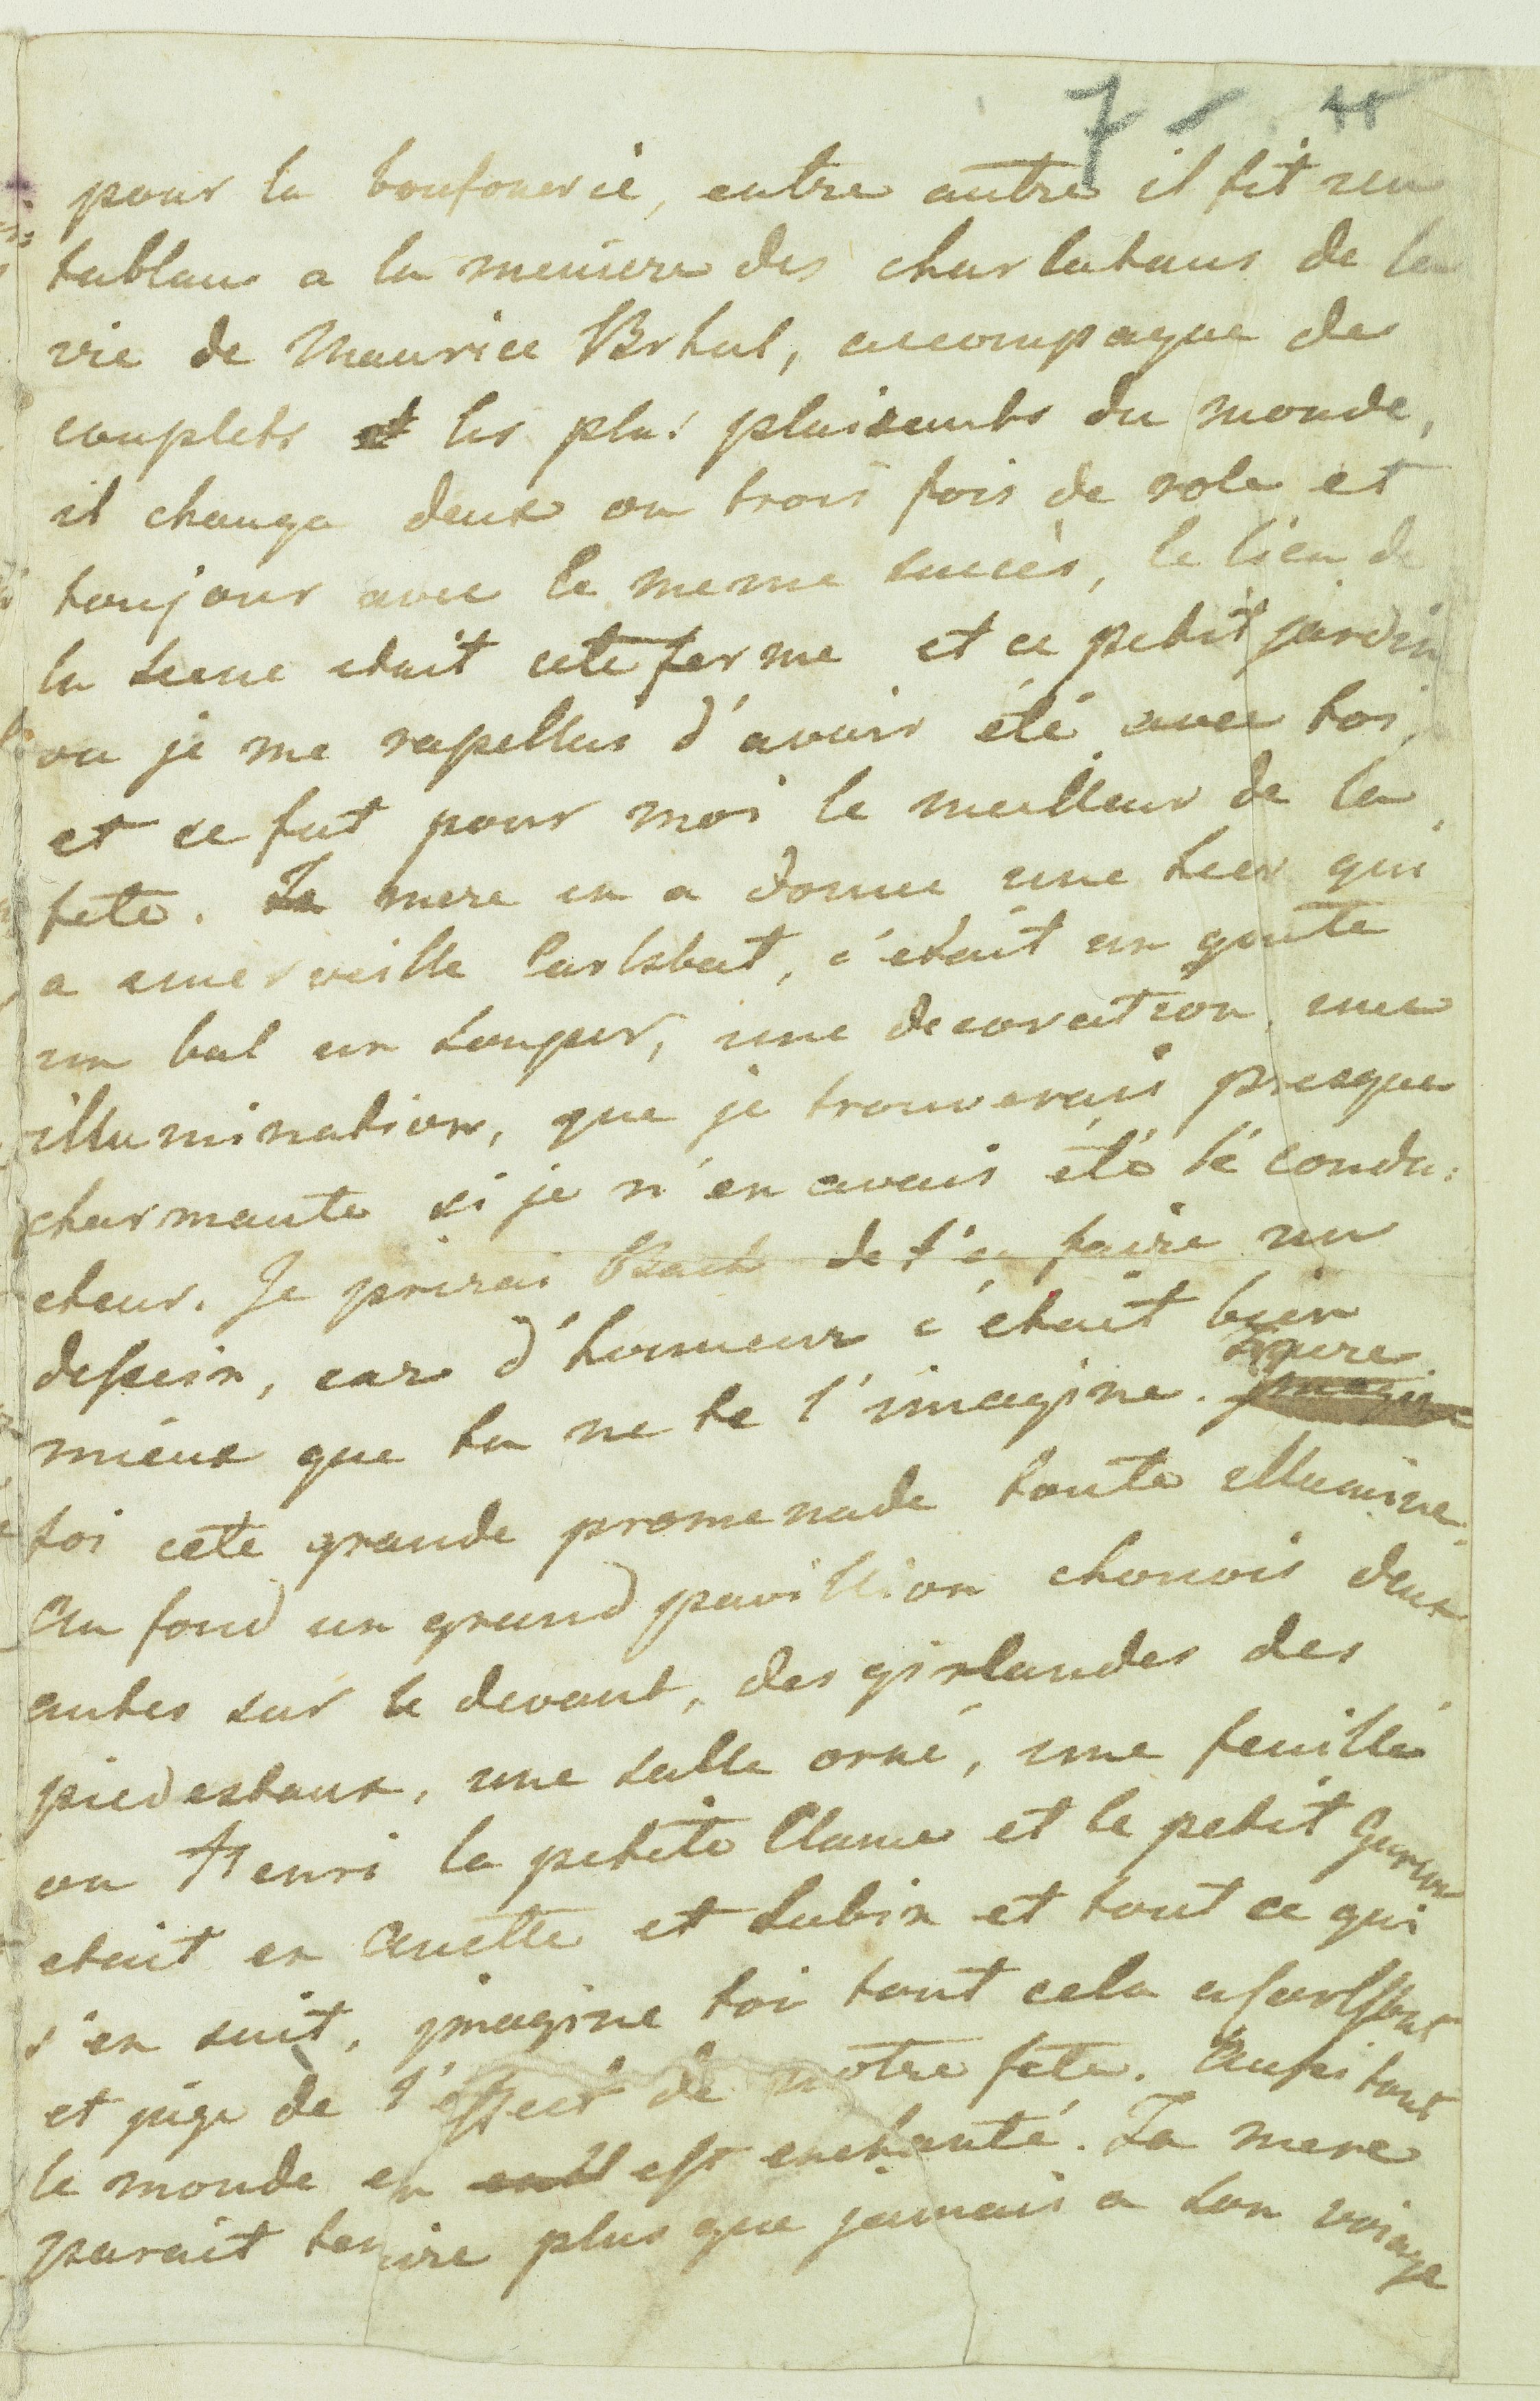 7 -
pour la boufonerie, entre autre il fit un
tablau a la meniere des charlatans de la
vie de Maurice Brhul, accompagne de
couplets les plus plaisants du monde,
il changa deux ou trois fois de role et
toujour avec le meme succès, le lieu de
la scene etait cete ferme et ce petit jardin
ou je me rapellus d'avoir été avec toi,
et ce fut pour moi le meilleur de la
fete. Ta mere en a donne une hier qui
a emerveille Carlsbat, c'etait un goute
un bal un souper, une decoration, une
illumination, que je trouverais presque
charmante si je n'en avais été le condu:
cteur. Je prirai Bach de t'en faire un
dessein, car d'honneur c'etait bien
mieux que tu ne te l'imagine. figure
toi cete grande promenade toute illumine.
Au fond un grand pavillion chonois deux
autes sur le devant, des girlandes des
piedestaux, une salle orné, une feuillé
ou Henri la petite Clame et le petit
etait en Anette et Lubin et tout ce qui
s'en suit, jmagine toi tout cela a
et juge de l'effect de notre fete. Aussi tout
le monde en est enchanté. Ta mere
parait tenire plus que jamais a son voiage